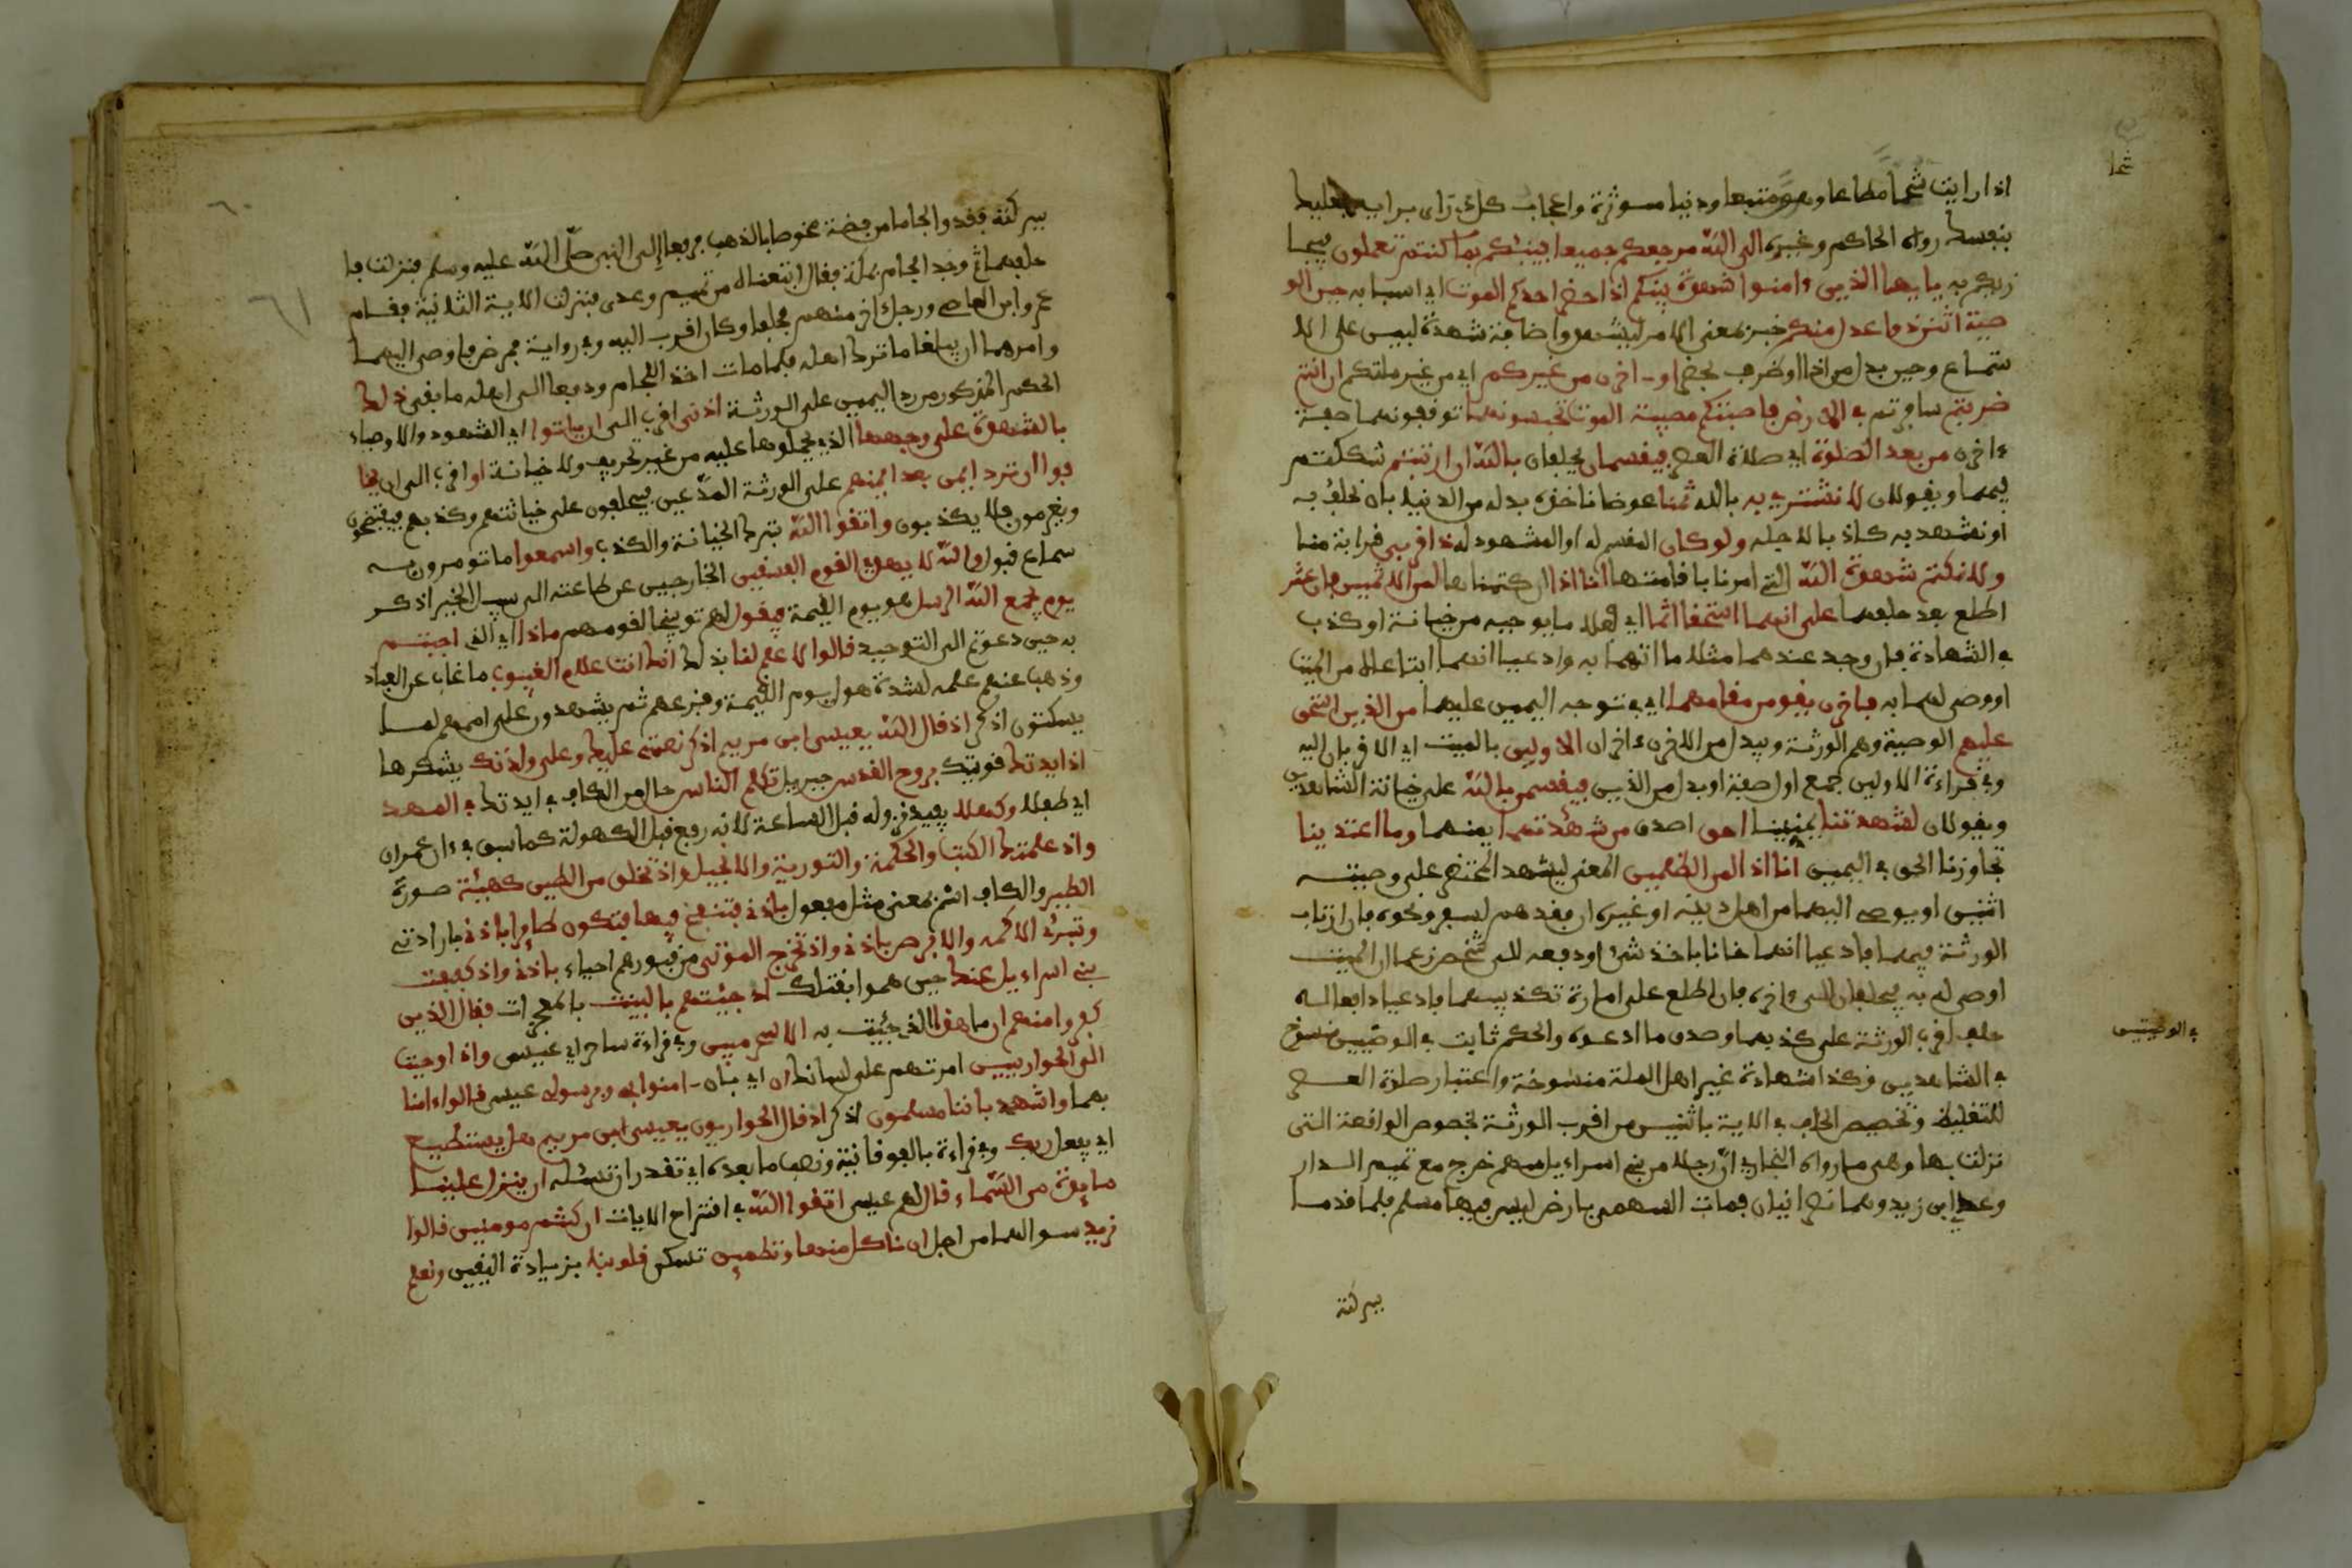 شحا
اذا رايت شحا مطاعا وهوى متبعا ودنيا موثرة واعجاب كل ذي راى برايه فعليك
بنفسك رواه الحاكم وغيره الى الله مرجعكم جميعا فينبئكم بما كنتم تعملون فيجا
زيكم به يايها الذين ءامنوا شهدة بينكم اذا حضر احدكم الموت اي اسبابه حين الو
صية اثنن ذوا عدل منكم خبر بمعنى الامر ليشهد واضافة شهدة لبين على الا
تساع وحين بدل من اذا او ظرف لحضر او اخرن من غيركم اي من غير ملتكم ان انتم
ضربتم سافرتم في الارض فاصبتكم مصيبة الموت تحبسونهما توقفونهما صفة
ءاخرن من بعد الصلوة اي صلاة العصر فيقسمان يحلفان بالله ان ارتبتم شككتم
فيهما ويقولان لا نشتري به بالله ثمنا عوضا ناخذه بدله من الدنيا بان نحلف به
او نشهد به كاذبا لاجله ولو كان المقسم له او المشهود له ذا قربى قرابة منا
ولا نكتم شهدة الله التي امرنا باقامتها انا اذا ان كتمناها لمن الاثمين فان عثر
اطلع بعد حلفهما على انهما استحقا اثما اي فعلا ما يوجبه من خيانة او كذب
في الشهادة فان وجد عندهما مثلا ما اتهما به وادعيا انهما ابتاعاه من الميت
او وصى لهما به فاخرن يقومن مقامهما اي في توجه اليمين عليهما من الذين استحق
عليهم الوصية وهم الورثة ويبدل من الاخرن ءاخران الاولين بالميت اي الاقربان اليه
وفي قراءة الاولين جمع اول صفة او بدل من الذين فيقسمن بالله على خيانة الشاهدين
ويقولان لشهدتنا يميننا احق اصدق من شهدتهما يمينهما وما اعتدينا
تجاوزنا الحق في اليمين انا اذا لمن الظلمين المعنى ليشهد المحتضر على وصيته
اثنين او يوصي اليهما من اهل دينه او غيره ان فقدهم لسفر ونحوه فان ارتاب
الورثة فيهما فادعيا انهما خانا باخذ شئ او دفعه الى شخص زعما ان الميت
اوصى له به فيحلفان الى ءاخره فان اطلع على امارة تكذيبهما فادعيا دافعا له
حلف اقرب الورثة على كذبهما وصدق ما ادعوه والحكم ثابت في الوصيين منسوخ
في الوصيين
في الشاهدين وكذا شهادة غير اهل الملة منسوخة واعتبار صلاة العصر
للتغليظ وتخصيص الحلف في الاية باثنين من اقرب الورثة لخصوص الواقعة التي
نزلت بها وهي ما رواه البخاري ان رجلا من بني اسراءيل سهم خرج مع تميم الدار
وعدي ابن زيد وهما نصرانيان فمات السهمي بارض ليس فيها مسلم فلما قدما
بتركته
٦٠
٦١
بتركته فقدوا جاما من فضة مخوصا بالذهب فرفعا الى النبي صلى الله عليه وسلم فنزلت فا
حلفهما ثم وجد الجام بمكة فقال ابتعناه من تميم وعدى فنزلت الاية الثانية فقام
عمرو ابن العاصي ورجل اخر منهم فحلفا وكان اقرب اليه وفي رواية فمرض فاوصى اليهما
وامرهما ان يبلغا ما ترك اهله فلما مات اخذا الجام ودفعا الى اهله ما بقى ذلك
الحكم المذكور من رد اليمين على الورثة ادنى اقرب الى ان ياتوا اي الشهود والاوصياء
بالشهدة على وجهها الذي تحملوها عليه من غير تحريف ولا خيانة او اقرب الى ان يخا
فوا ان ترد ايمن بعد ايمنهم على الورثة المدعين فيحلفون على خيانتهم وكذبهم فيفتضحون
ويغرمون فلا يكذبون واتقوا الله بترك الخيانة والكذب واسمعوا ما تومرون به
سماع قبول والله لا يهدي القوم الفسقين الخارجين عن طاعته الى سبيل الخير اذكر
يوم يجمع الله الرسل هو يوم القيمة فيقول لهم توبيخا لقومهم ماذا اي الذي اجبتم
به حين دعوتم الى التوحيد قالوا لا علم لنا بذلك انك انت علام الغيوب ما غاب عن العباد
وذهب عنهم علمه لشدة هول يوم القيمة وفزعهم ثم يشهدون على اممهم لما
يسكنون اذكر اذ قال الله يعيسى ابن مريم اذكر نعمتي عليك وعلى ولدتك بشكرها
اذ ايدتك قويتك بروح القدس جبريل تكلم الناس حال من الكاف في ايدتك في المهد
اي طفلا وكهلا يفيد نزوله قبل الساعة لانه رفع قبل الكهولة كما سبق في ءال عمران
واذ علمتك الكتب والحكمة والتورية والانجيل واذ تخلق من الطين كهيئة صورة
الطير والكاف اسم بمعنى مثل مفعول باذني فتنفخ فيها فتكون طايرا باذني بارادتي
وتبرئ الاكمه والابرص باذني واذ تخرج الموتى من قبورهم احياء باذني واذ كففت
بني اسراءيل عنك حين هموا بقتلك اذ جئتهم بالبينت بالمعجزات فقال الذين
كفروا منهم ان ما هذا الذي جئت به الا سحر مبين وفي قراءة ساحر اي عيسى واذ اوحيت
الى الحوارين امرتهم على لسانك ان اي بان ءامنوا بي وبرسولي عيسى قالوا ءامنا
بهما واشهد باننا مسلمون اذكر اذ قال الحواريون يعيسى ابن مريم هل يستطيع
اي يفعل ربك وفي قراءة بالفوقانية ونصب ما بعده اي تقدر ان تسئله ان ينزل علينا
مايدة من السماء قال لهم عيسى اتقوا الله في اقتراح الايات ان كنتم مومنين قالوا
نريد سوالها من اجل ان ناكل منها وتطمين تسكن قلوبنا بزيادة اليقين ونعلم